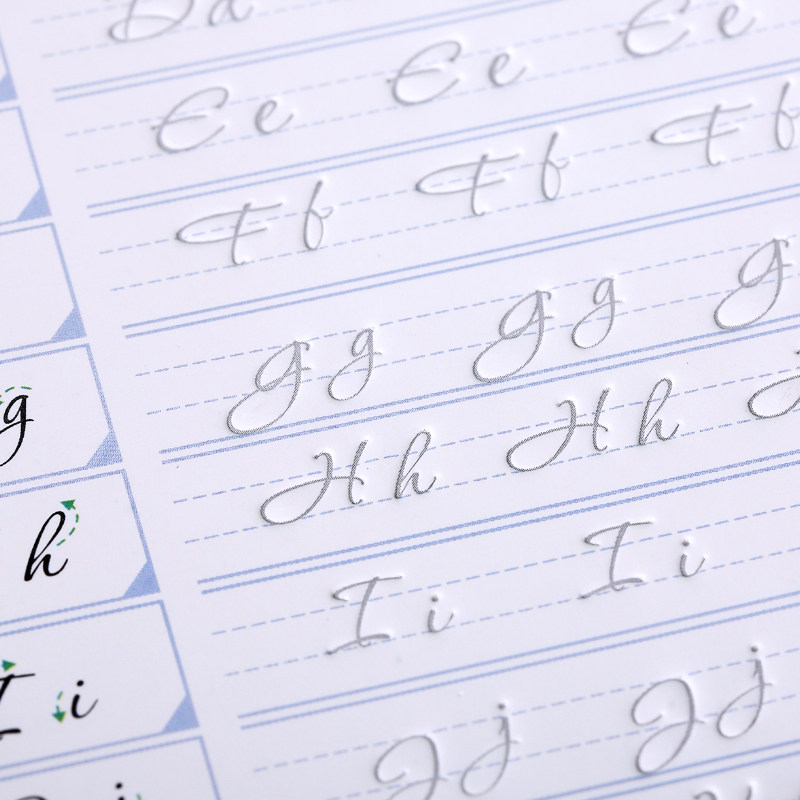 Dd
Ee Ee Ee
Ff Ff Ff
g Gg Gg G
h Hh Hh
I i Ii Ii
Jj Jj